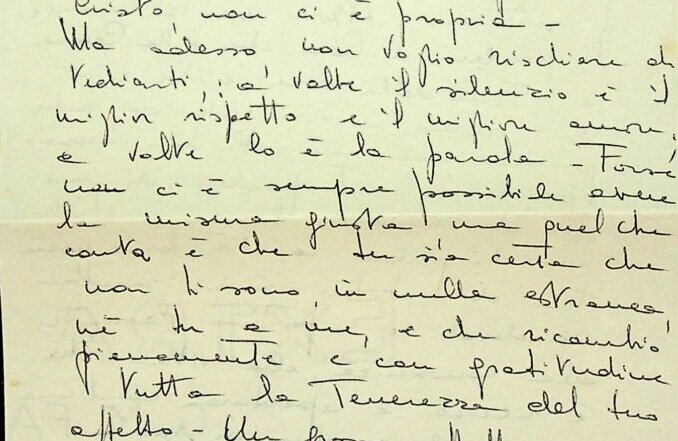 Cristo non ci è propria -
Ma adesso non voglio rischiare di
tediarti, : a volte il silenzio è il
miglior rispetto e il miglior amore,
a volte lo è la parola - Forse
non ci è sempre possibile avere
la misura giusta ma quel che
conta è che tu sia certa che
non ti sono in nulla estranea,
nè tu a me, e che ricambio
pienamente e con gratitudine
tutta la tenerezza del tuo
affetto - Un